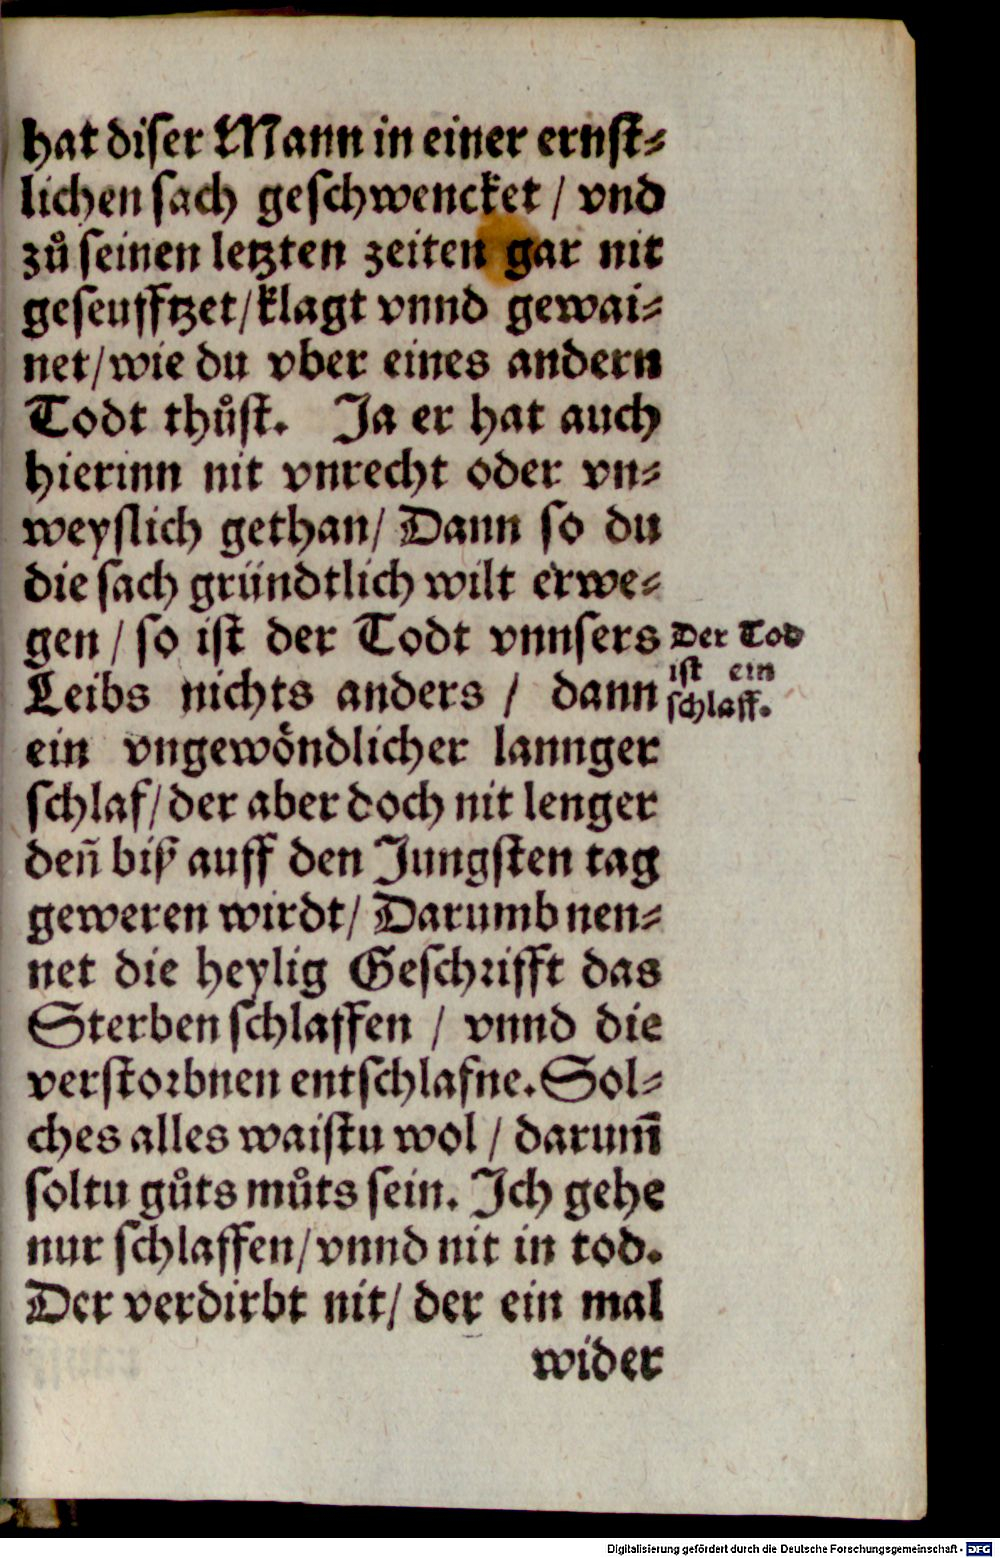 hat diser Mann in einer ernst⸗
lichen sach geschwencket / vnd
zuͦ seinen letzten zeiten gar nit
geseufftzet/klagt vnnd gewai⸗
net/wie du vber eines andern
Todt thuͦst. Ja er hat auch
hierinn nit vnrecht oder vn⸗
weyslich gethan/ Dann so du
die sach gründtlich wilt erwe⸗
gen / so ist der Todt vnnsers
Leibs nichts anders / dann
ein vngewöndlicher lannger
schlaf/der aber doch nit lenger
deñ biß auff den Jungsten tag
geweren wirdt/ Darumb nen⸗
net die heylig Geschrifft das
Sterben schlaffen / vnnd die
verstorbnen entschlafne. Sol⸗
ches alles waistu wol / darum̃
soltu guͦts muͦts sein. Ich gehe
nur schlaffen/vnnd nit in tod.
Der verdirbt nit/ der ein mal
wider
Der Tod
ist ein
schlaff.
Digitalisierung gefördert durch die Deutsche Forschungsgemeinschaft - DFG